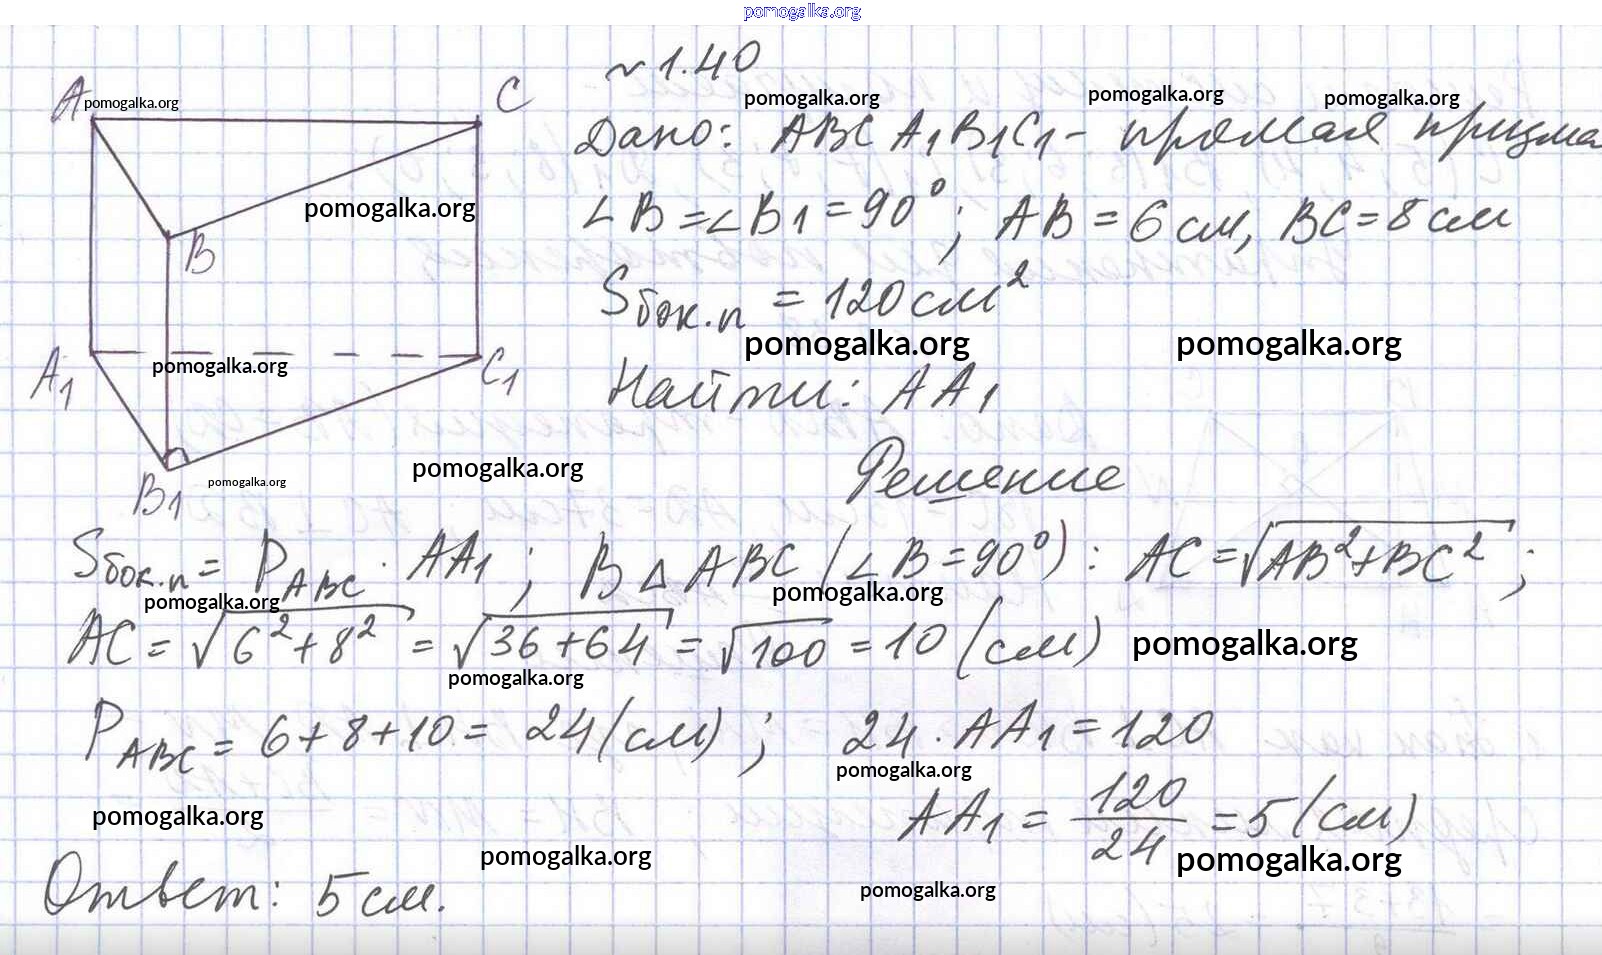 pomogalka.org
~ 1.40
A pomogalka.org
C
pomogalka.org pomogalka.org pomogalka.org
Дано: ABC A₁B₁C₁ - прямая призма
pomogalka.org
∠B = ∠B₁ = 90°; AB = 6 см, BC = 8 см
B
Sбок.п = 120 см²
pomogalka.org pomogalka.org
A₁ pomogalka.org C₁
Найти: AA₁
pomogalka.org
Решение
B₁ pomogalka.org
Sбок.п = P_ABC · AA₁; В △ABC (∠B = 90°): AC = √(AB² + BC²);
pomogalka.org pomogalka.org
AC = √(6² + 8²) = √(36 + 64) = √100 = 10 (см) pomogalka.org
pomogalka.org
P_ABC = 6 + 8 + 10 = 24 (см); 24 · AA₁ = 120
pomogalka.org
pomogalka.org
AA₁ = 120/24 = 5 (см)
pomogalka.org pomogalka.org
pomogalka.org
Ответ: 5 см.